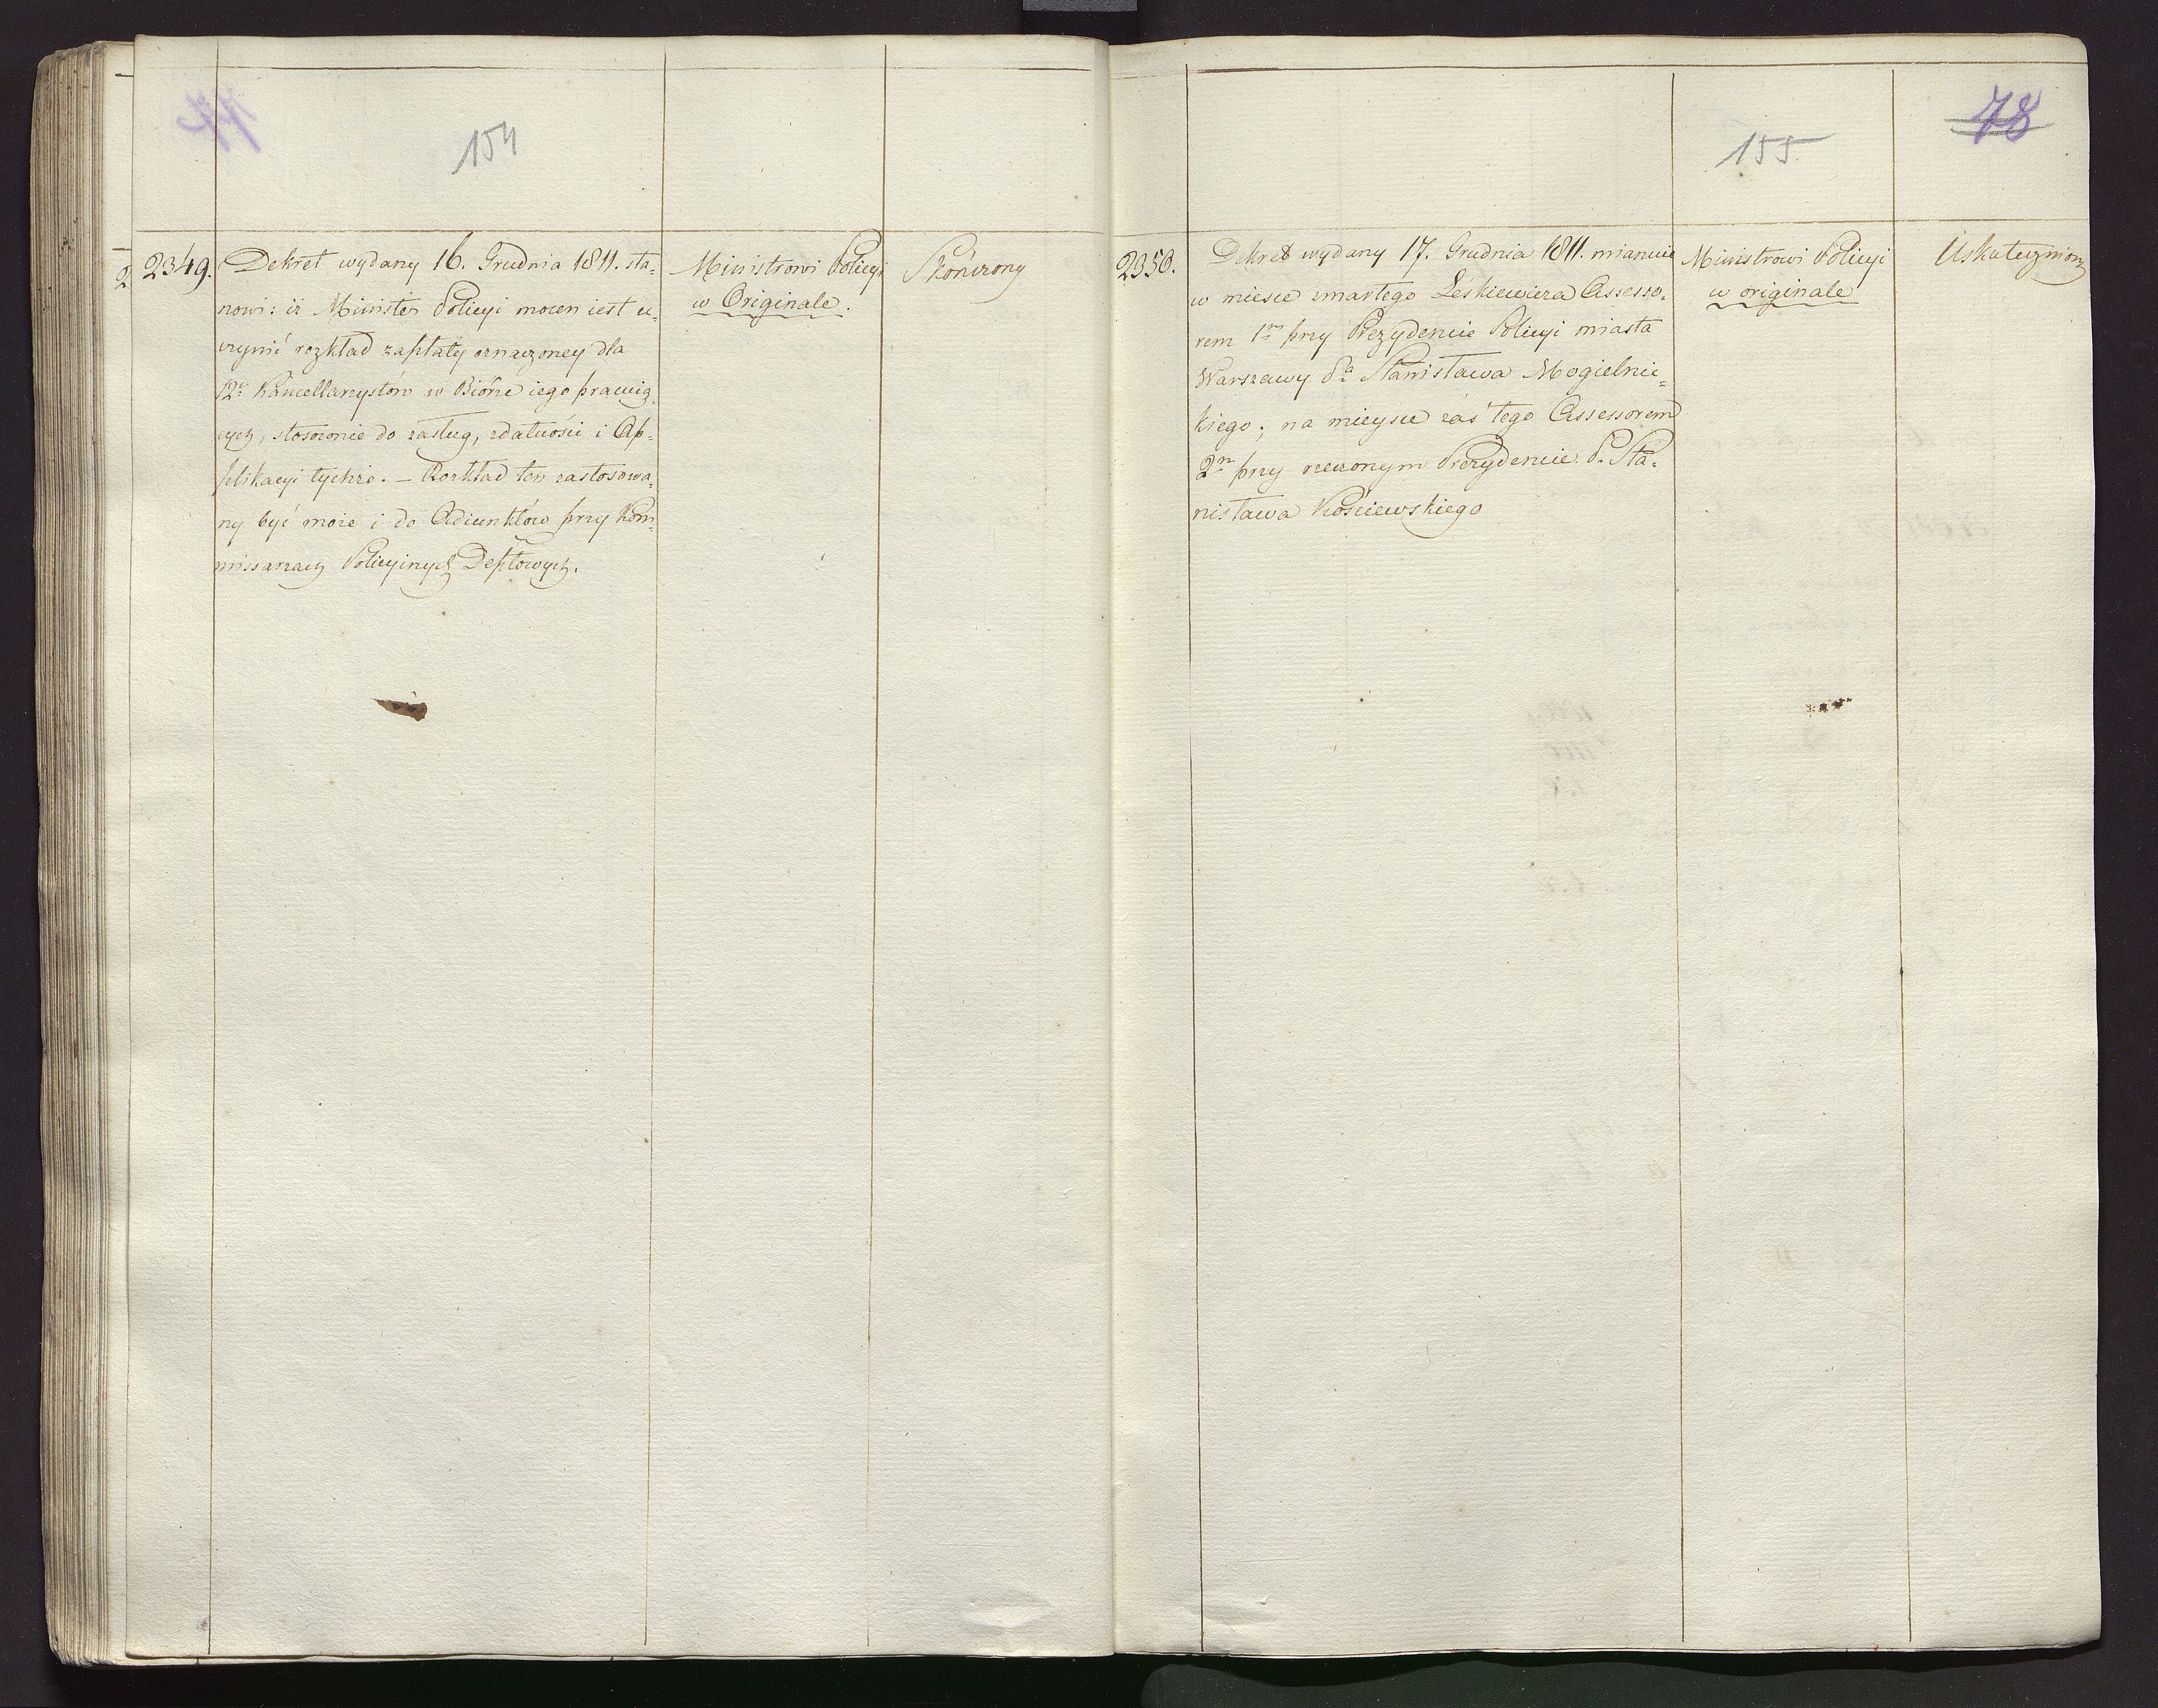 154
2349.
Dekret wydany 16. Grudnia 1811. sta=
nowi: iż Minister Policyi mocen iest u=
czynić rozkład zapłaty oznaczoney dla
12r Kancellarzystów w Biórze iego pracuią=
cych, stosownie do zasług, zdatności i Ap=
plikacyi tychże. – Rozkład ten zastosowa=
ny być może i do Adiunktów przy Kom=
missarzach Policyinych Deptowych.
Ministrowi Policyi
w Originale.
Skończony
78
155.
2350.
Dekret wydany 17. Grudnia 1811. mianuie
w miesce zmarłego Leśkiewicza Assesso=
rem 1m przy Prezydencie Policyi miasta
Warszawy Pa Stanisława Mogielnic=
kiego; na mieysce zaś tego Assessorem
2m przy rzeczonym Prezydencie P. Sta=
nisława Kościewskiego
Ministrowi Policyi
w originale
Uskuteczniony